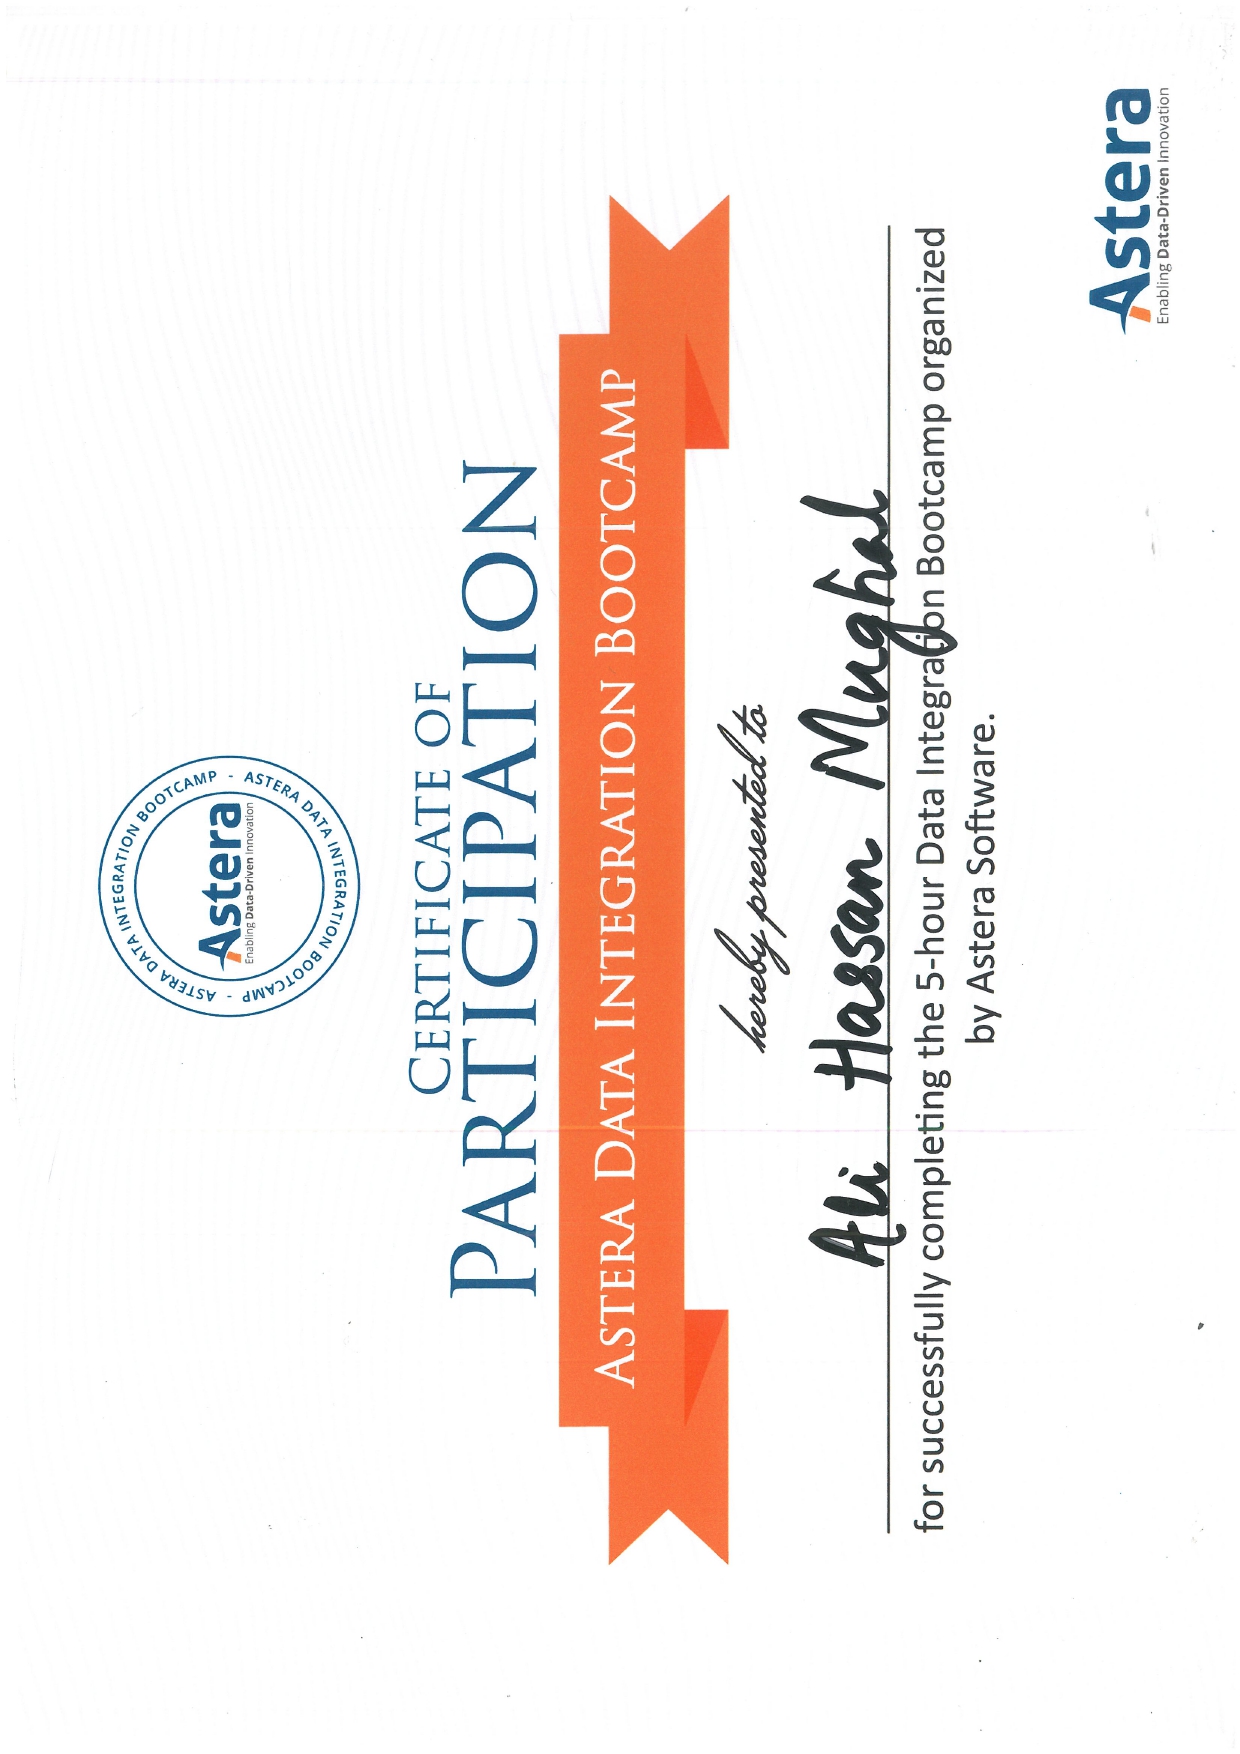 ASTERA DATA INTEGRATION BOOTCAMP - ASTERA DATA INTEGRATION BOOTCAMP -
Astera
Enabling Data-Driven Innovation
CERTIFICATE OF
PARTICIPATION
ASTERA DATA INTEGRATION BOOTCAMP
hereby presented to
Ali Hassan Mughal
for successfully completing the 5-hour Data Integration Bootcamp organized
by Astera Software.
Astera
Enabling Data-Driven Innovation